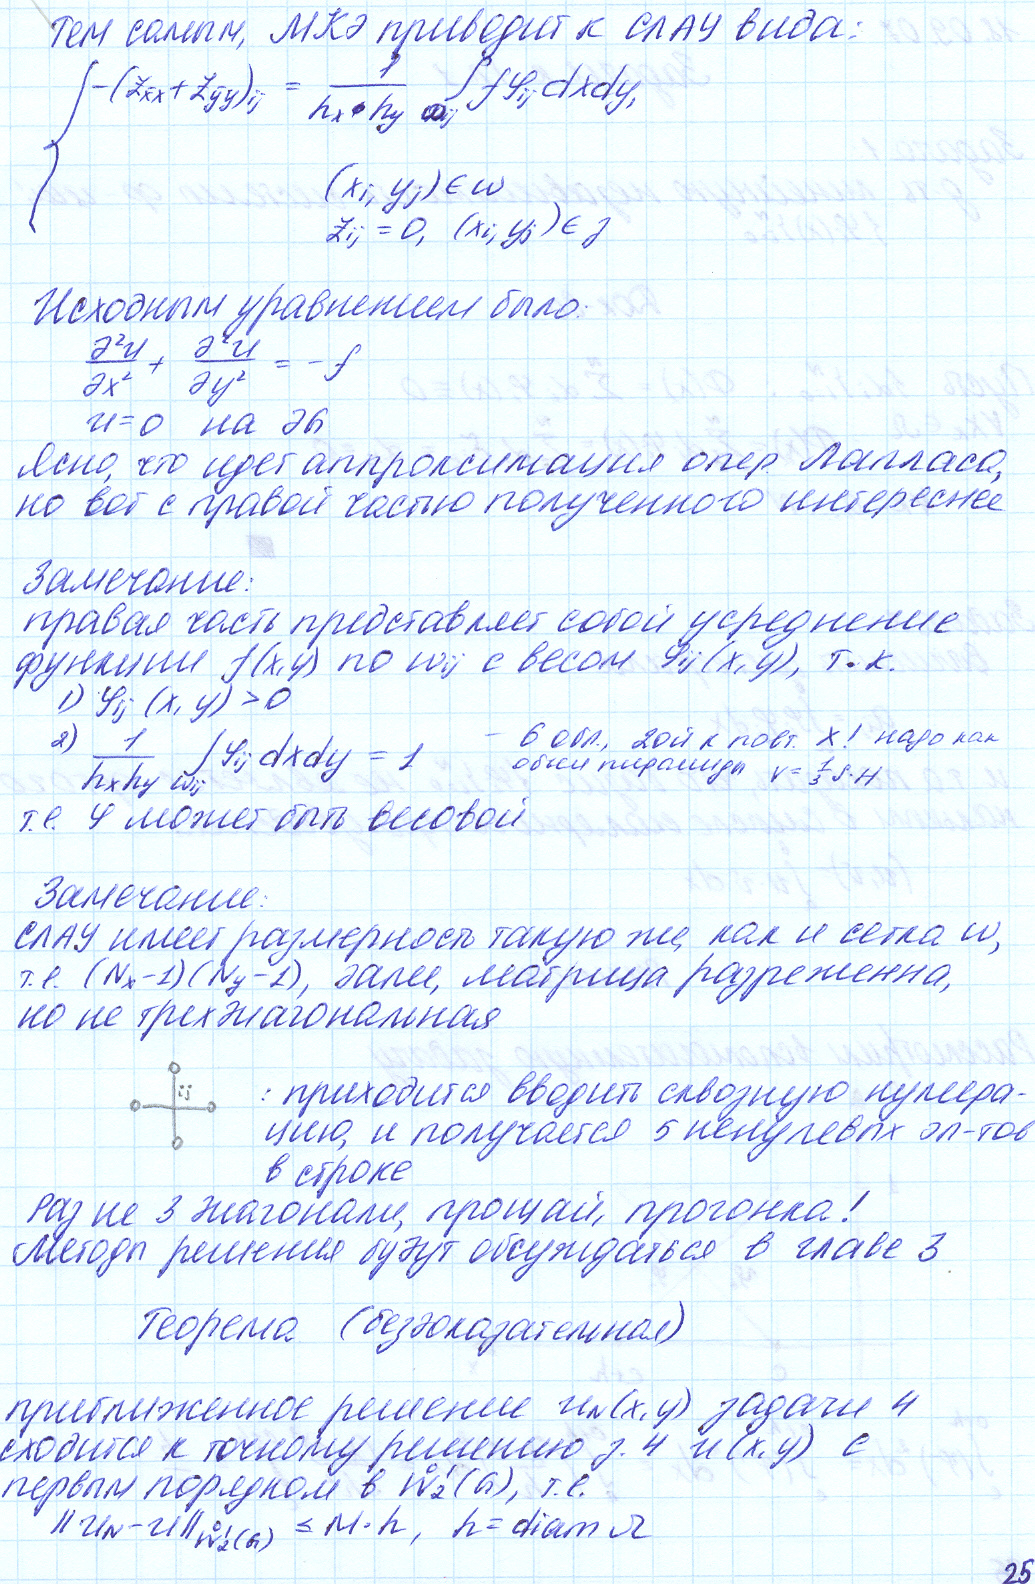 Тем самым, МКЭ приводит к СЛАУ вида:
{ -(z_x̄x + z_ȳy)_ij = 1/(hx·hy) ∫_ωij f φij dxdy,
(xi, yj) ∈ ω
zij = 0, (xi, yj) ∈ γ
Исходным уравнением было:
∂²u/∂x² + ∂²u/∂y² = -f
u=0 на ∂G
Ясно, что идет аппроксимация опер. Лапласа,
но вот с правой частью полученного интереснее
Замечание:
правая часть представляет собой усреднение
функции f(x,y) по ωij с весом φij(x,y), т.к.
1) φij (x,y) > 0
2) 1/(hxhy) ∫_ωij φij dxdy = 1 - 6 обл., 2ой к повт. X! надо как
объем пирамиды V = 1/3 S·H
т.е. φ может быть весовой
Замечание:
СЛАУ имеет размерность такую же, как и сетка ω,
т.е. (Nx-1)(Ny-1), далее, матрица разреженна,
но не трехдиагональная
ij
: приходится вводить сквозную нумера-
цию, и получается 5 ненулевых эл-тов
в строке
Раз не 3 диагонали, прощай, прогонка!
Методы решения будут обсуждаться в главе 3
Теорема (бездоказательная)
приближенное решение uN(x,y) задачи 4
сходится к точному решению з. 4 u(x,y) с
первым порядком в W̊₂¹(G), т.е.
||uN-u||_W̊₂¹(G) ≤ M·h, h = diam Ω
25